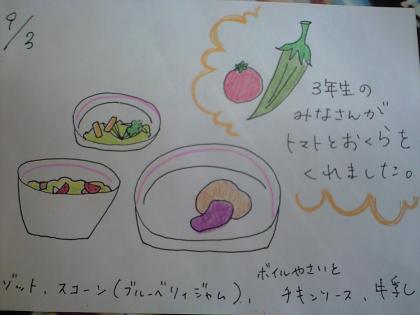 9/3
3年生の
みなさんが
トマトとおくらを
くれました。
ゾット、スコーン(ブルーベリィジャム)、ボイルやさいと
チキンソース、牛乳